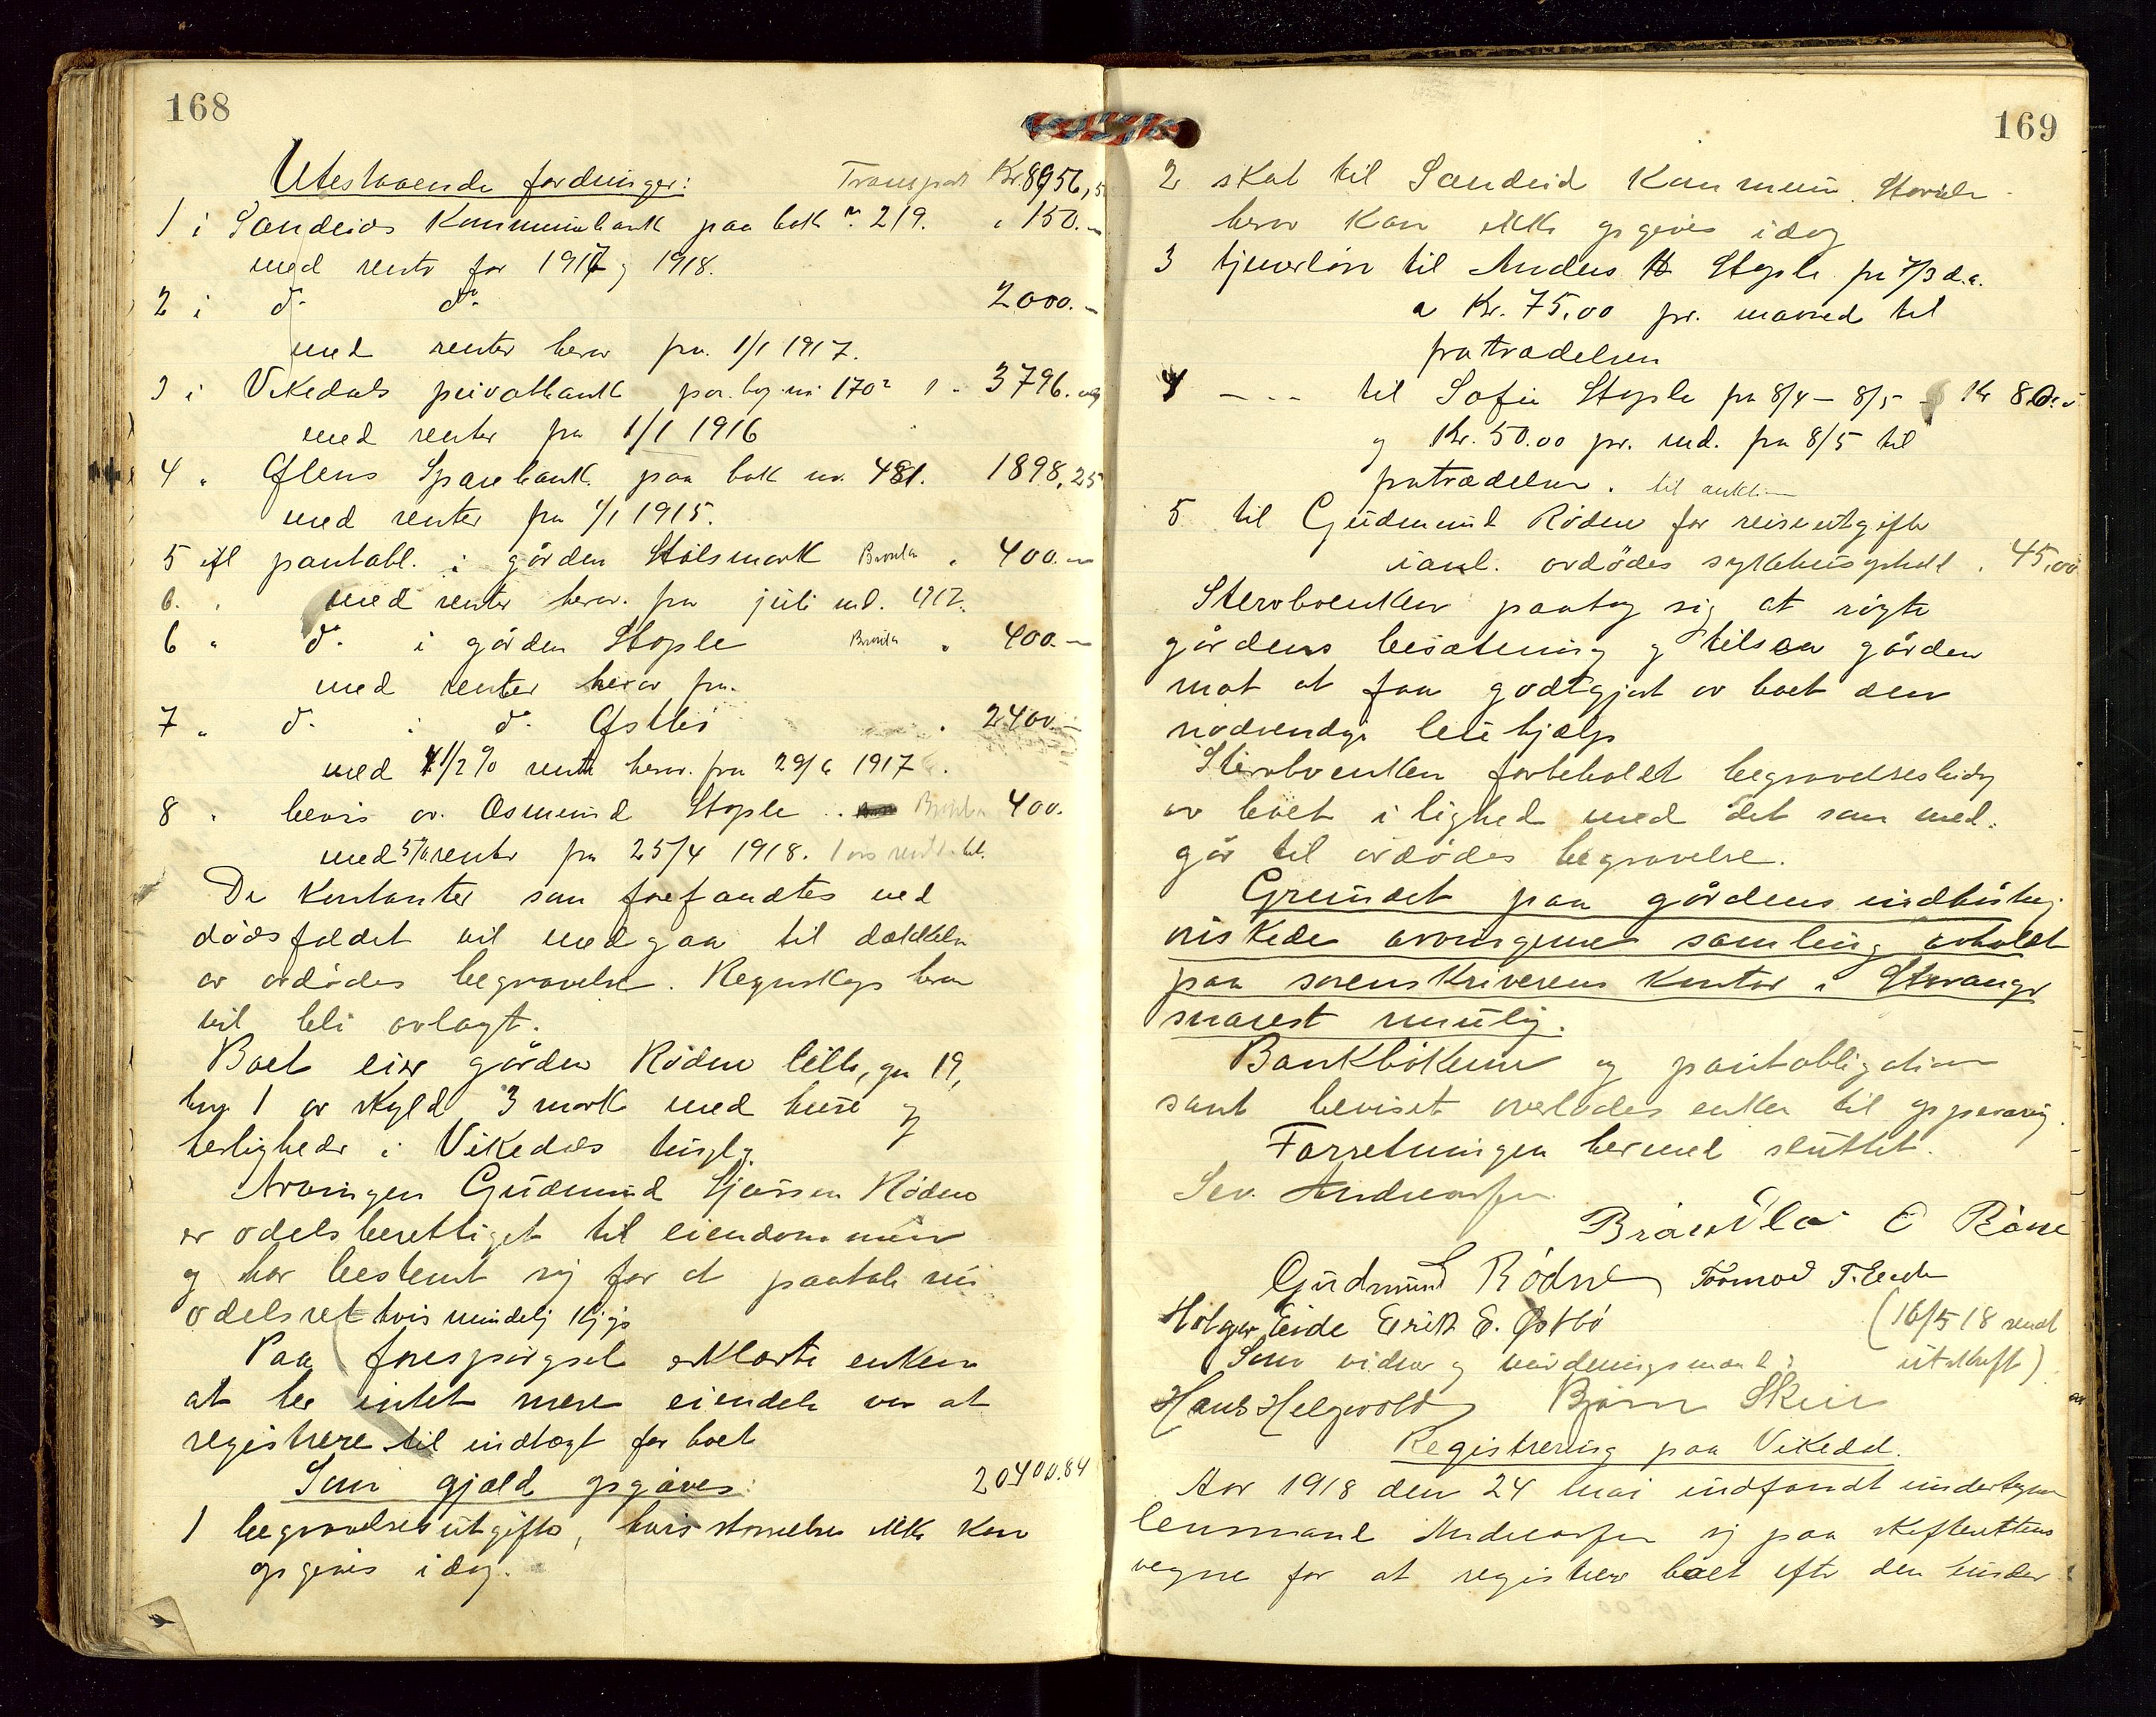 168
Utestaaende fordringer: Transport Kr. 8956,5
1 i Sandeids Kommunebank paa bok nr 219. " 150.-
med rente for 1917 og 1918.
2 i do do 2000.-
med renter herav fra 1/1 1917.
3 i Vikedals privatbank paa bog nr 170 " 3796.
med renter fra 1/1 1916
4 " Ølens Sparebank paa bok nr. 481. 1898,25
med renter fra 1/1 1915.
5 ifl pantobl. i gården Stølsmark " 400.-
6. " med renter herav fra juli md. 1917.
6 " do i gården Stople " 400.-
med renter herav fra
7 " do i do Østbö " 2400.-
med 4 1/2 % rente herav fra 29/6 1917.
8 " bevis av Osmund Stople 400.
med 5% renter fra 25/4 1918.
De kontanter som forefandtes ved
dödsfaldet vil medgaa til dækkelse
av avdödes begravelse. Regnskap herav
vil bli avlagt.
Boet eier gården Rödne lille, gn 19,
bn 1 av skyld 3 mark med huse og
herligheder i Vikedals tingl.
Arvingen Gudmund Rödne
er odelsberettiget til eiendommen
og har bestemt sig for at paatale sin
odelsret hvis nindelig
Paa forespørgsel erklærte enken
at her intet mere eiendele var at
registrere til indtægt for boet
20400.84
Som gjæld opgaves:
1 begravelsesutgifter, hvis størrelse ikke kan
opgives idag.
169
2 skat til Sandeid Kommune. Størrelse
herav kan ikke opgives idag
3 tjenerløn til Anders Stople fra 7/3 d.a.
a Kr. 75,00 pr. maaned til
fratrædelsen
4 - - - til Sofie Stople fra 8/4 - 8/5 Kr 80.
og Kr. 50.00 pr. md. fra 8/5 til
fratrædelsen. til auktion
5 til Gudmund Rödne for reiseutgifter
i anl. avdödes sykehusophold. 45,00
Stervboenken paatog sig at røgte
gårdens besætning og tilsaa gården
mot at faa godtgjort av boet den
nødvendige leiehjælp
Stervboenken forbeholdt begravelsesbidrag
av boet i lighed med det som med-
går til avdödes begravelse.
Grundet paa gårdens
ønskede arvingene samling avholdt
paa sorenskriverens kontor i Stavanger
snarest mulig.
Bankbøkerne og pantobligationer
samt beviset overlodes enken til opbevaring.
Forretningen hermed sluttet.
Sev. Andreassen
Gudmund S Rödne Tormod T. Eide
Holger Eide Erik E. Østbö (16/5 18 sendt
Som vidner og vurderingsmænd: utskrift)
Hans Helgevold Bjørn Skeie
Registrering paa Vikedal.
Aar 1918 den 24 mai indfandt undertegnede
lensmand Andreassen sig paa skifterettens
vegne for at registrere boet efter den under